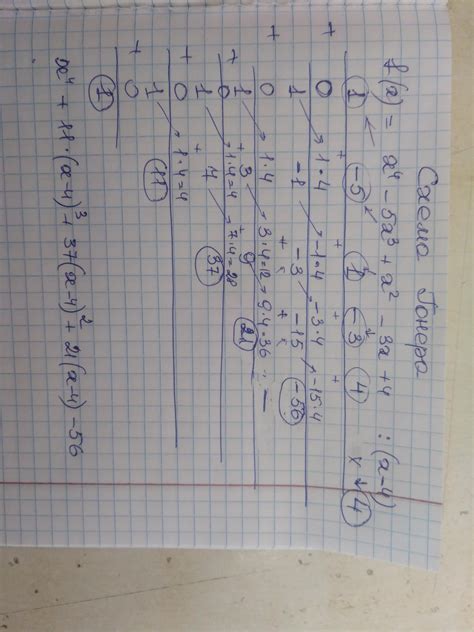 Схема Гонера
f(x) = x⁴ - 5x³ + x² - 3x + 4 : (x-4)
1 -5 1 -3 4 4
+ 0 1·4 -1·4 -3·4 -15·4
1 -1 -3 -15 -56
+ 0 1·4 3·4=12 9·4=36
1 3 9 21
+ 0 1·4=4 7·4=28
1 37
+ 0 1·4=4
1 11
+ 0
1
x⁴ + 11·(x-4)³ + 37(x-4)² + 21(x-4) - 56